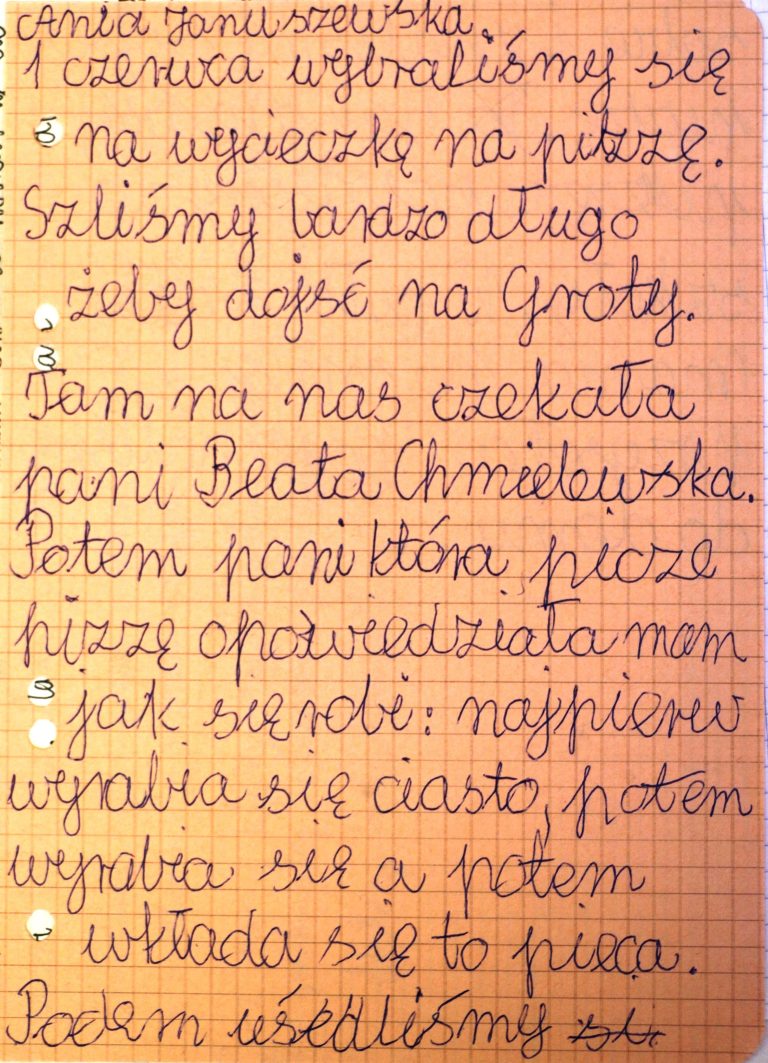 Ania Januszewska.
1 czerwca wybraliśmy się
na wycieczkę na pizzę.
Szliśmy bardzo długo
żeby dojść na Groty.
Tam na nas czekała
pani Beata Chmielewska.
Potem pani która piecze
pizzę opowiedziała mam
jak się robi: najpierw
wyrabia się ciasto, potem
wyrabia się a potem
wkłada się to pieca.
Podem usiedliśmy